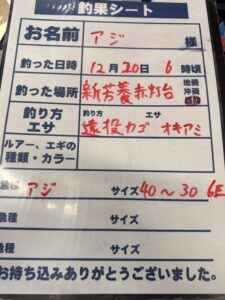 釣果シート
お名前 アジ 様
釣った日時 12月20日 6時頃
釣った場所 新芳養赤灯台 地磯 沖磯
釣り方 エサ 釣り方 エサ 遠投カゴ オキアミ
ルアー、エギの種類・カラー
魚種 アジ サイズ 40〜30 6匹
魚種 サイズ
魚種 サイズ
お持ち込みありがとうございました。